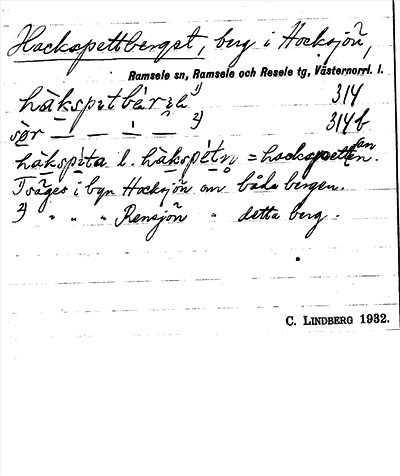 Hackspettberget, berg i Hocksjön,
Ramsele sn, Ramsele och Resele tg, Västernorrl. l.
håkspitbärje 1) 314
sör — — — 2) 314 b
håkspita l. håkspitn = hackspetten.
1) säges i byn Hocksjön om båda bergen.
2) " " " Rensjön " detta berg.
C. LINDBERG 1932.